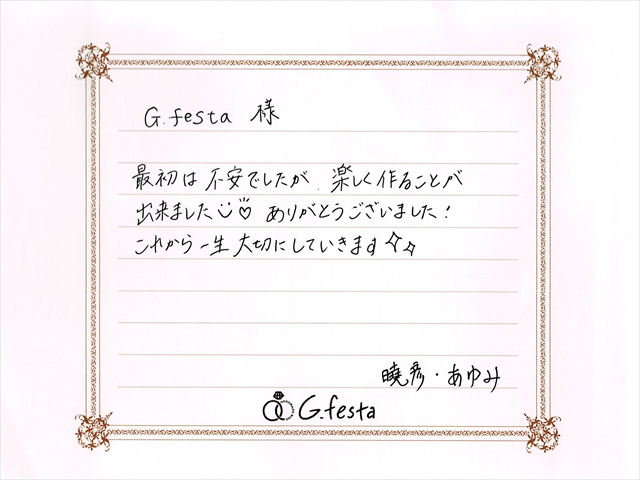 G.festa 様
最初は不安でしたが、楽しく作ることが
出来ました ありがとうございました!
これから一生大切にしていきます
暁彦・あゆみ
G.festa